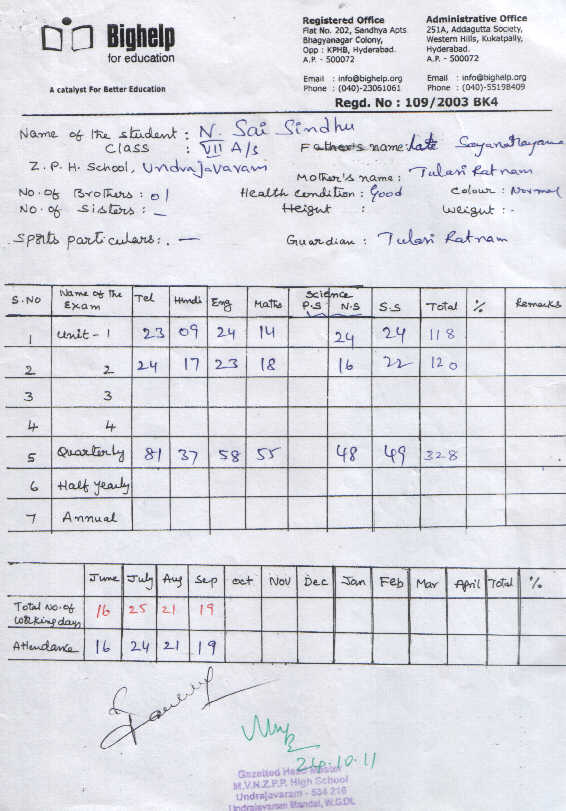 Bighelp
for education
A catalyst For Better Education
Registered Office
Flat No. 202, Sandhya Apts
Bhagyanagar Colony,
Opp : KPHB, Hyderabad.
A.P. - 500072
Email : info@bighelp.org
Phone : (040)-23061061
Administrative Office
251A, Addagutta Society,
Western Hills, Kukatpally,
Hyderabad.
A.P. - 500072
Email : info@bighelp.org
Phone : (040)-55198409
Regd. No : 109/2003 BK4
Name of the student : N. Sai Sindhu
Class : VII A/s Father's name: late Sayanarayana
Z.P.H. School, Undrajavaram Mother's name : Tulasi Ratnam
No. of Brothers : 01 Health condition : Good Colour : Normal
No. of Sisters : — Height : Weight : -
Sports particulars : . — Guardian : Tulasi Ratnam
S.NO Name of the Exam Tel Hindi Eng Maths Science P.S N.S S.S Total % Remarks
1 Unit - 1 23 09 24 14 24 24 118
2 2 24 17 23 18 16 22 120
3 3
4 4
5 Quarterly 81 37 58 55 48 49 328
6 Half yearly
7 Annual
June July Aug Sep Oct Nov Dec Jan Feb Mar April Total %
Total No. of working days 16 25 21 19
Attendance 16 24 21 19
24.10.11
Gazetted Head Master
M.V.N.Z.P.P. High School
Undrajavaram - 534 216
Undrajavaram Mandal, W.G.Dt.